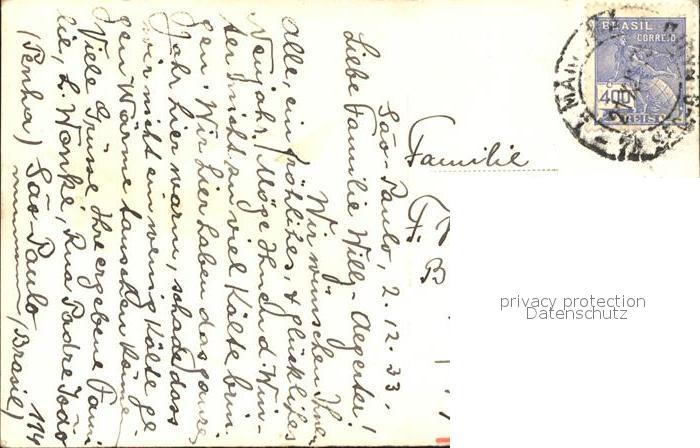 São-Paulo, 2.12.33.
Liebe Familie Willy-Aegerter!
Wir wünschen Ihnen
Alle, ein fröhliches, & glückliches
Neujahr. Möge Ihnen d. Win-
ter nicht zu viel Kälte brin-
gen. Wir hier haben das ganze
Jahr hier warm, schade dass
wir nicht ein wenig Kälte ge-
gen Wärme tauschen können
Viele Grüsse Ihre ergebene Fami-
lie, L. Wanke, Rua Padre João
(Penha) São-Paulo 114
Brasil)
Familie
F.
B
BRASIL
CORREIO
400
REIS
privacy protection
Datenschutz